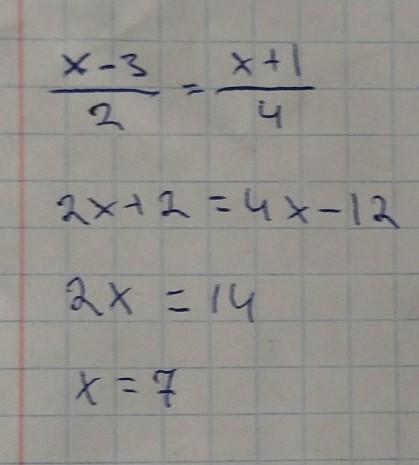 x-3/2 = x+1/4
2x+2=4x-12
2x = 14
x = 7